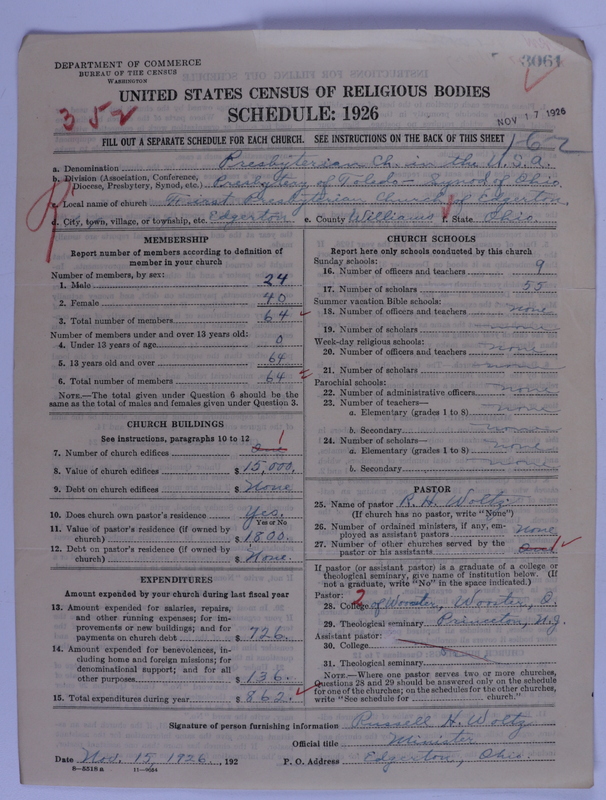 DEPARTMENT OF COMMERCE
BUREAU OF THE CENSUS
WASHINGTON
3061
UNITED STATES CENSUS OF RELIGIOUS BODIES
SCHEDULE: 1926
352
NOV 17 1926
FILL OUT A SEPARATE SCHEDULE FOR EACH CHURCH. SEE INSTRUCTIONS ON THE BACK OF THIS SHEET
162
a. Denomination Presbyterian Ch. in the U.S.A.
b. Division (Association, Conference, Diocese, Presbytery, Synod, etc.) Presbytery of Toledo - Synod of Ohio
c. Local name of church First Presbyterian Church of Edgerton,
d. City, town, village, or township, etc. Edgerton e. County Williams f. State Ohio.
MEMBERSHIP
Report number of members according to definition of
member in your church
Number of members, by sex:
1. Male 24
2. Female 40
3. Total number of members 64
Number of members under and over 13 years old:
4. Under 13 years of age 0
5. 13 years old and over 64
6. Total number of members 64
NOTE.—The total given under Question 6 should be
same as the total of males and females given under Question 3.
CHURCH BUILDINGS
See instructions, paragraphs 10 to 12
7. Number of church edifices One 1
8. Value of church edifices $ 15,000.
9. Debt on church edifices $ None
10. Does church own pastor's residence Yes.
Yes or No
11. Value of pastor's residence (if owned by
church) $ 1800.
12. Debt on pastor's residence (if owned by
church) $ None.
EXPENDITURES
Amount expended by your church during last fiscal year
13. Amount expended for salaries, repairs,
and other running expenses; for im-
provements or new buildings; and for
payments on church debt $ 726.
14. Amount expended for benevolences, in-
cluding home and foreign missions; for
denominational support; and for all
other purposes $ 136.
15. Total expenditures during year $ 862.
CHURCH SCHOOLS
Report here only schools conducted by this church
Sunday schools:
16. Number of officers and teachers 9
17. Number of scholars 55
Summer vacation Bible schools:
18. Number of officers and teachers none
19. Number of scholars none
Week-day religious schools:
20. Number of officers and teachers none
21. Number of scholars none
Parochial schools:
22. Number of administrative officers none
23. Number of teachers—
a. Elementary (grades 1 to 8) none
b. Secondary none
24. Number of scholars—
a. Elementary (grades 1 to 8) none
b. Secondary none
PASTOR
25. Name of pastor R. H. Woltz
(If church has no pastor, write "None")
26. Number of ordained ministers, if any, em-
ployed as assistant pastors None
27. Number of other churches served by the
pastor or his assistants One
If pastor (or assistant pastor) is a graduate of a college or
theological seminary, give name of institution below. (If
not a graduate, write "No" in the space indicated.)
Pastor: 2
28. College of Wooster, Wooster, O.
29. Theological seminary Princeton, N.J.
Assistant pastor:
30. College
31. Theological seminary
NOTE.—Where one pastor serves two or more churches,
Questions 28 and 29 should be answered only on the schedule
for one of the churches; on the schedules for the other churches,
write "See schedule for church."
Signature of person furnishing information Russell H. Woltz
Official title Minister
Date Nov. 15, 1926. , 192 P. O. Address Edgerton, Ohio.
8—5518a 11—9034